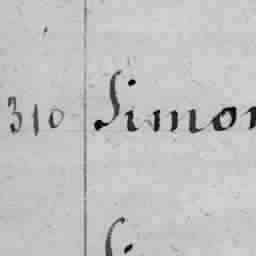 310 Simon